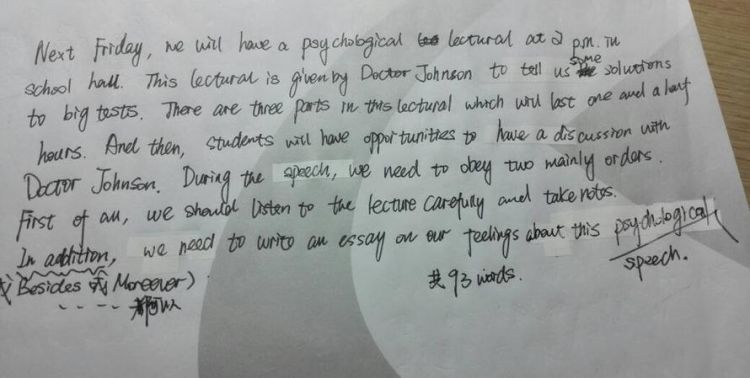 Next Friday, we will have a psychological lectural at 2 p.m. in
school hall. This lectural is given by Doctor Johnson to tell us some solutions
to big tests. There are three parts in this lectural which will last one and a half
hours. And then, students will have opportunities to have a discussion with
Doctor Johnson. During the speech, we need to obey two mainly orders.
First of all, we should listen to the lecture carefully and take notes.
In addition, we need to write an essay on our feelings about this psychological
speech.
(或 Besides 或 Moreover)
共 93 words.
都可以